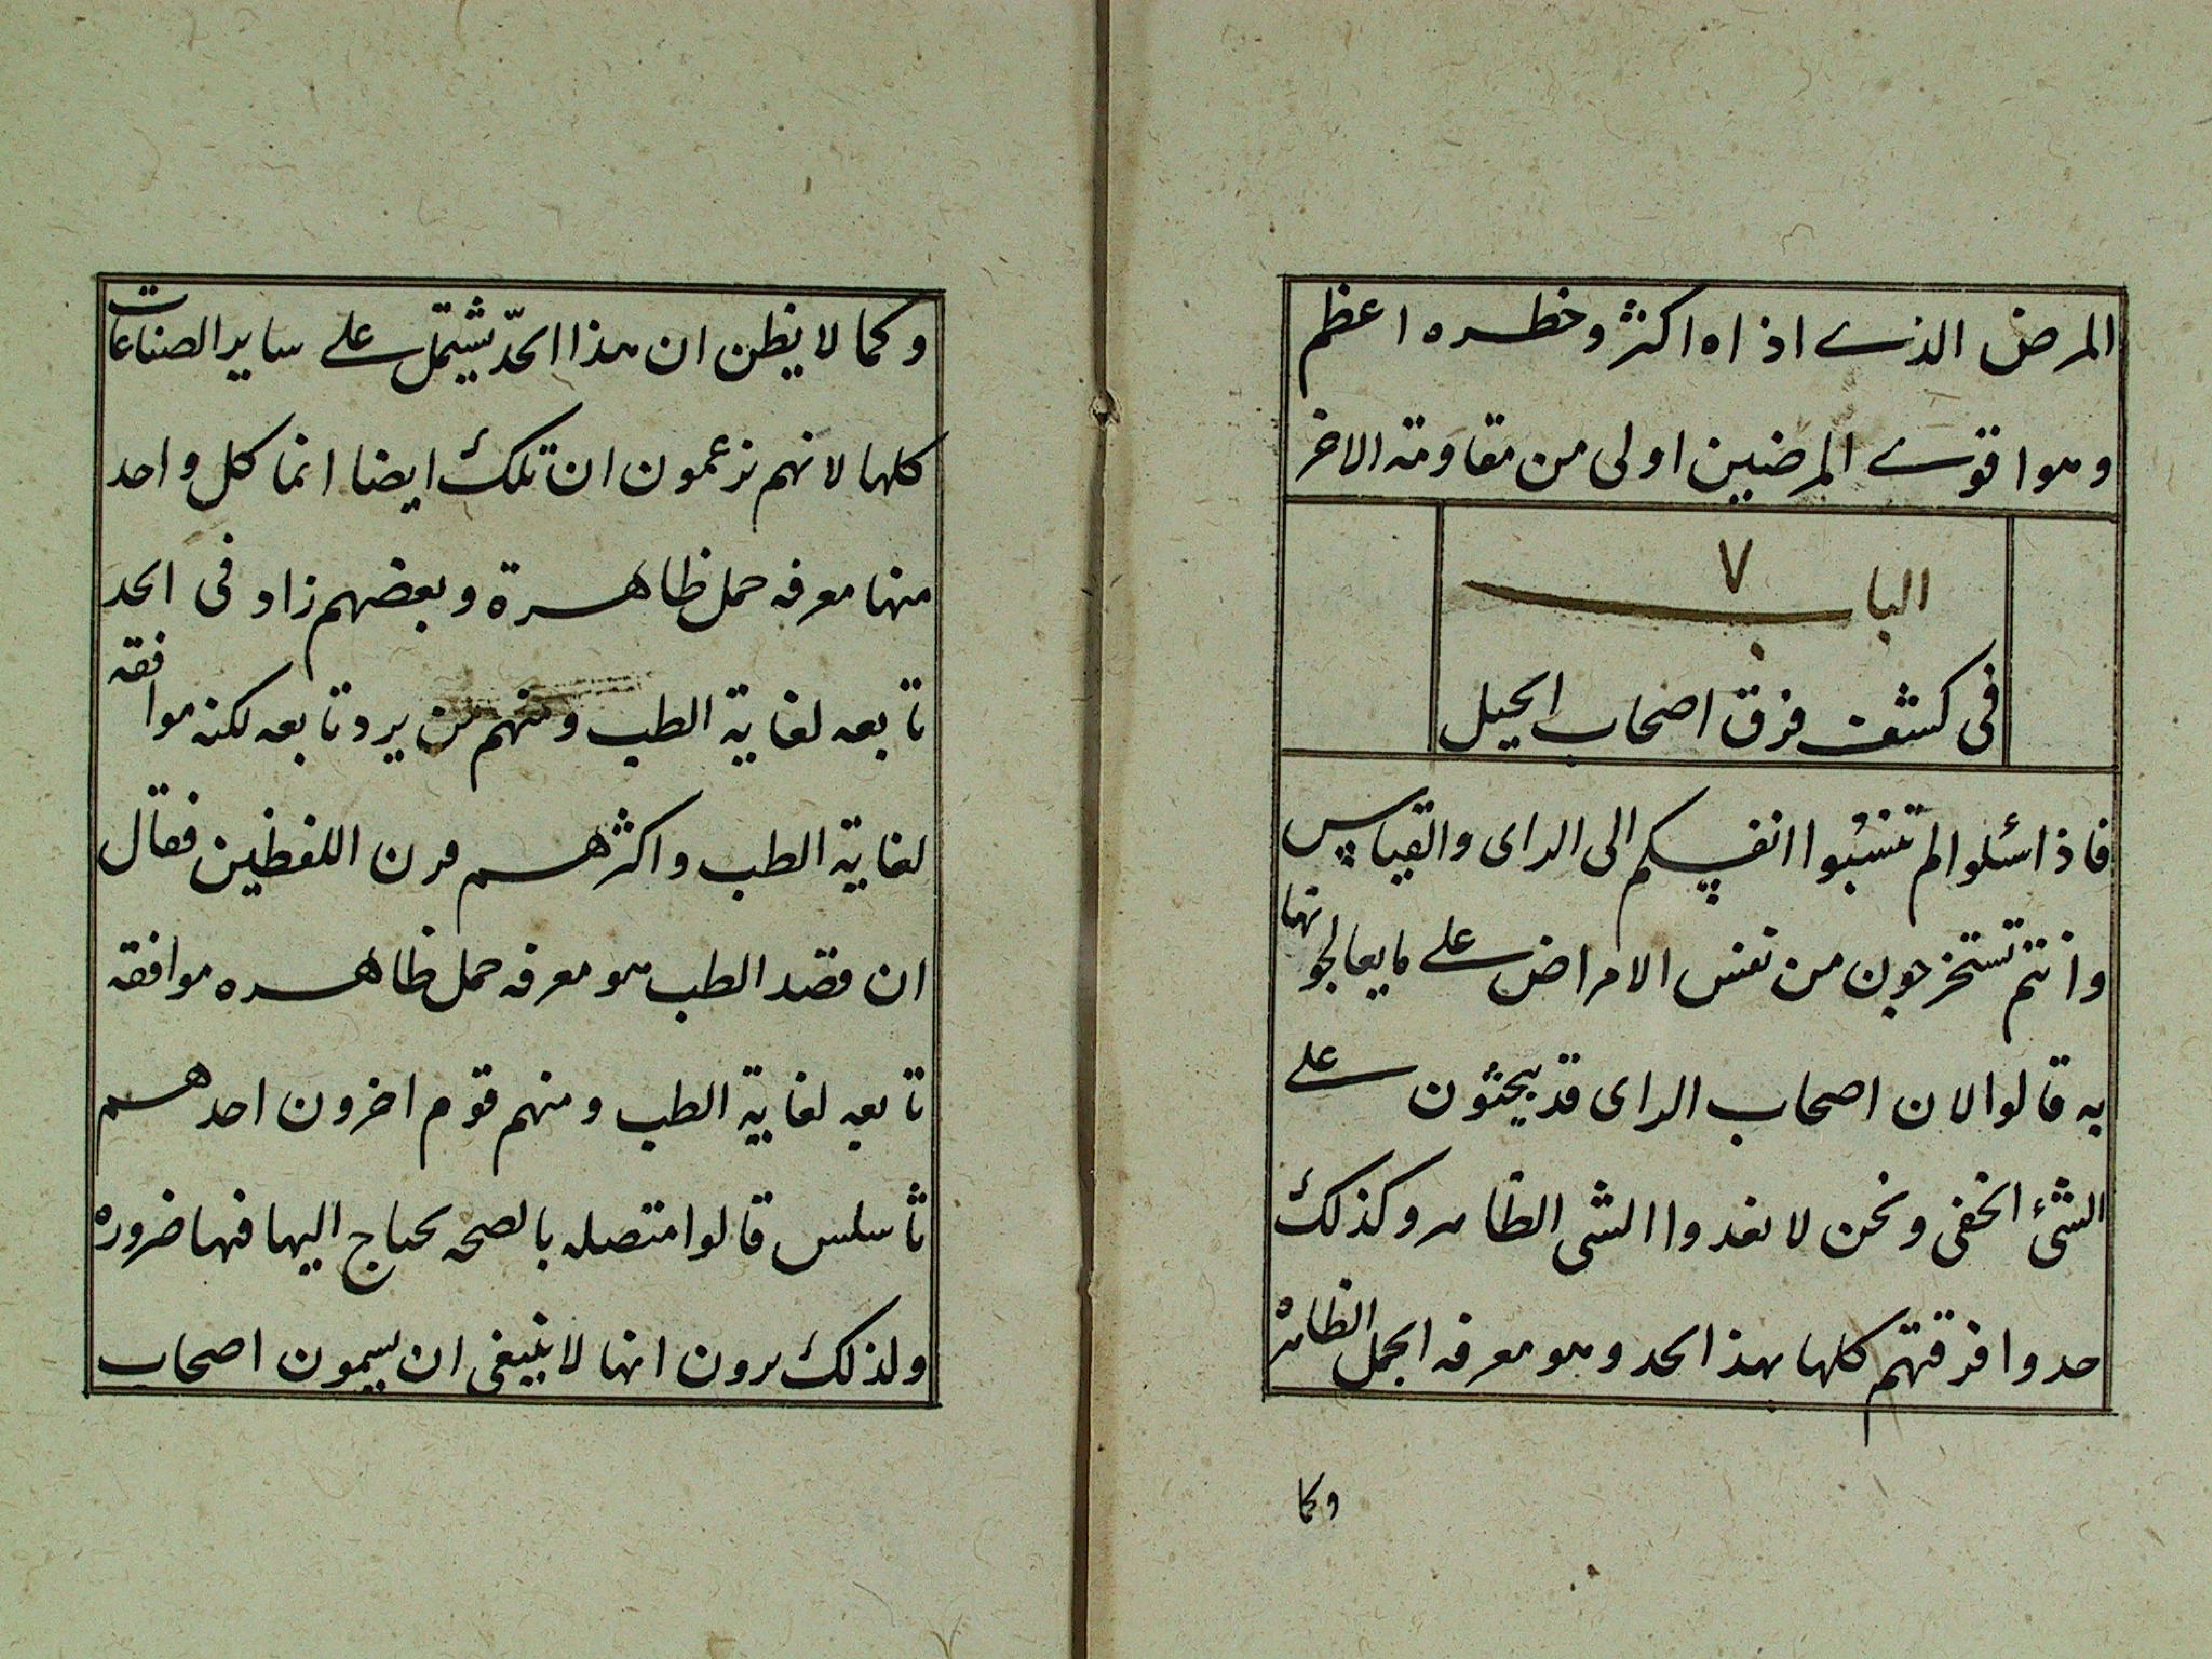 المرض الذي اذاه اكثر وخطره اعظم
وهوا قوي المرضين اولى من مقاومته الاخر
الباب ٧
فى كشف فرق اصحاب الحيل
فاذا سئلوا لم تنسبوا انفسكم الى الراى والقياس
وانتم تستخرجون من نفس الامراض على ما يعالجونها
به قالوا لان اصحاب الراى قد يبحثون على
الشئ الخفى ونحن لا نغدوا الشى الظاهر وكذلك
حدوا فرقتهم كلها بهذا الحد وهو معرفه الجمل الظاهره
وكما
وكما لا يظن ان هذا الحدّ يشتمل على ساير الصناعات
كلها لانهم يزعمون ان تلك ايضا انما كل واحد
منها معرفه جمل ظاهرة وبعضهم زاد فى الحد
تابعه لغاية الطب ومنهم من يرد تابعه لكنه موافقه
لغاية الطب واكثرهم قرن اللفظين فقال
ان قصد الطب هو معرفه جمل ظاهره موافقه
تابعه لغاية الطب ومنهم قوم اخرون احدهم
ثاسلس قالوا متصله بالصحه يحتاج اليها فيها ضروره
ولذلك يرون انها لا ينبغى ان يسمون اصحاب